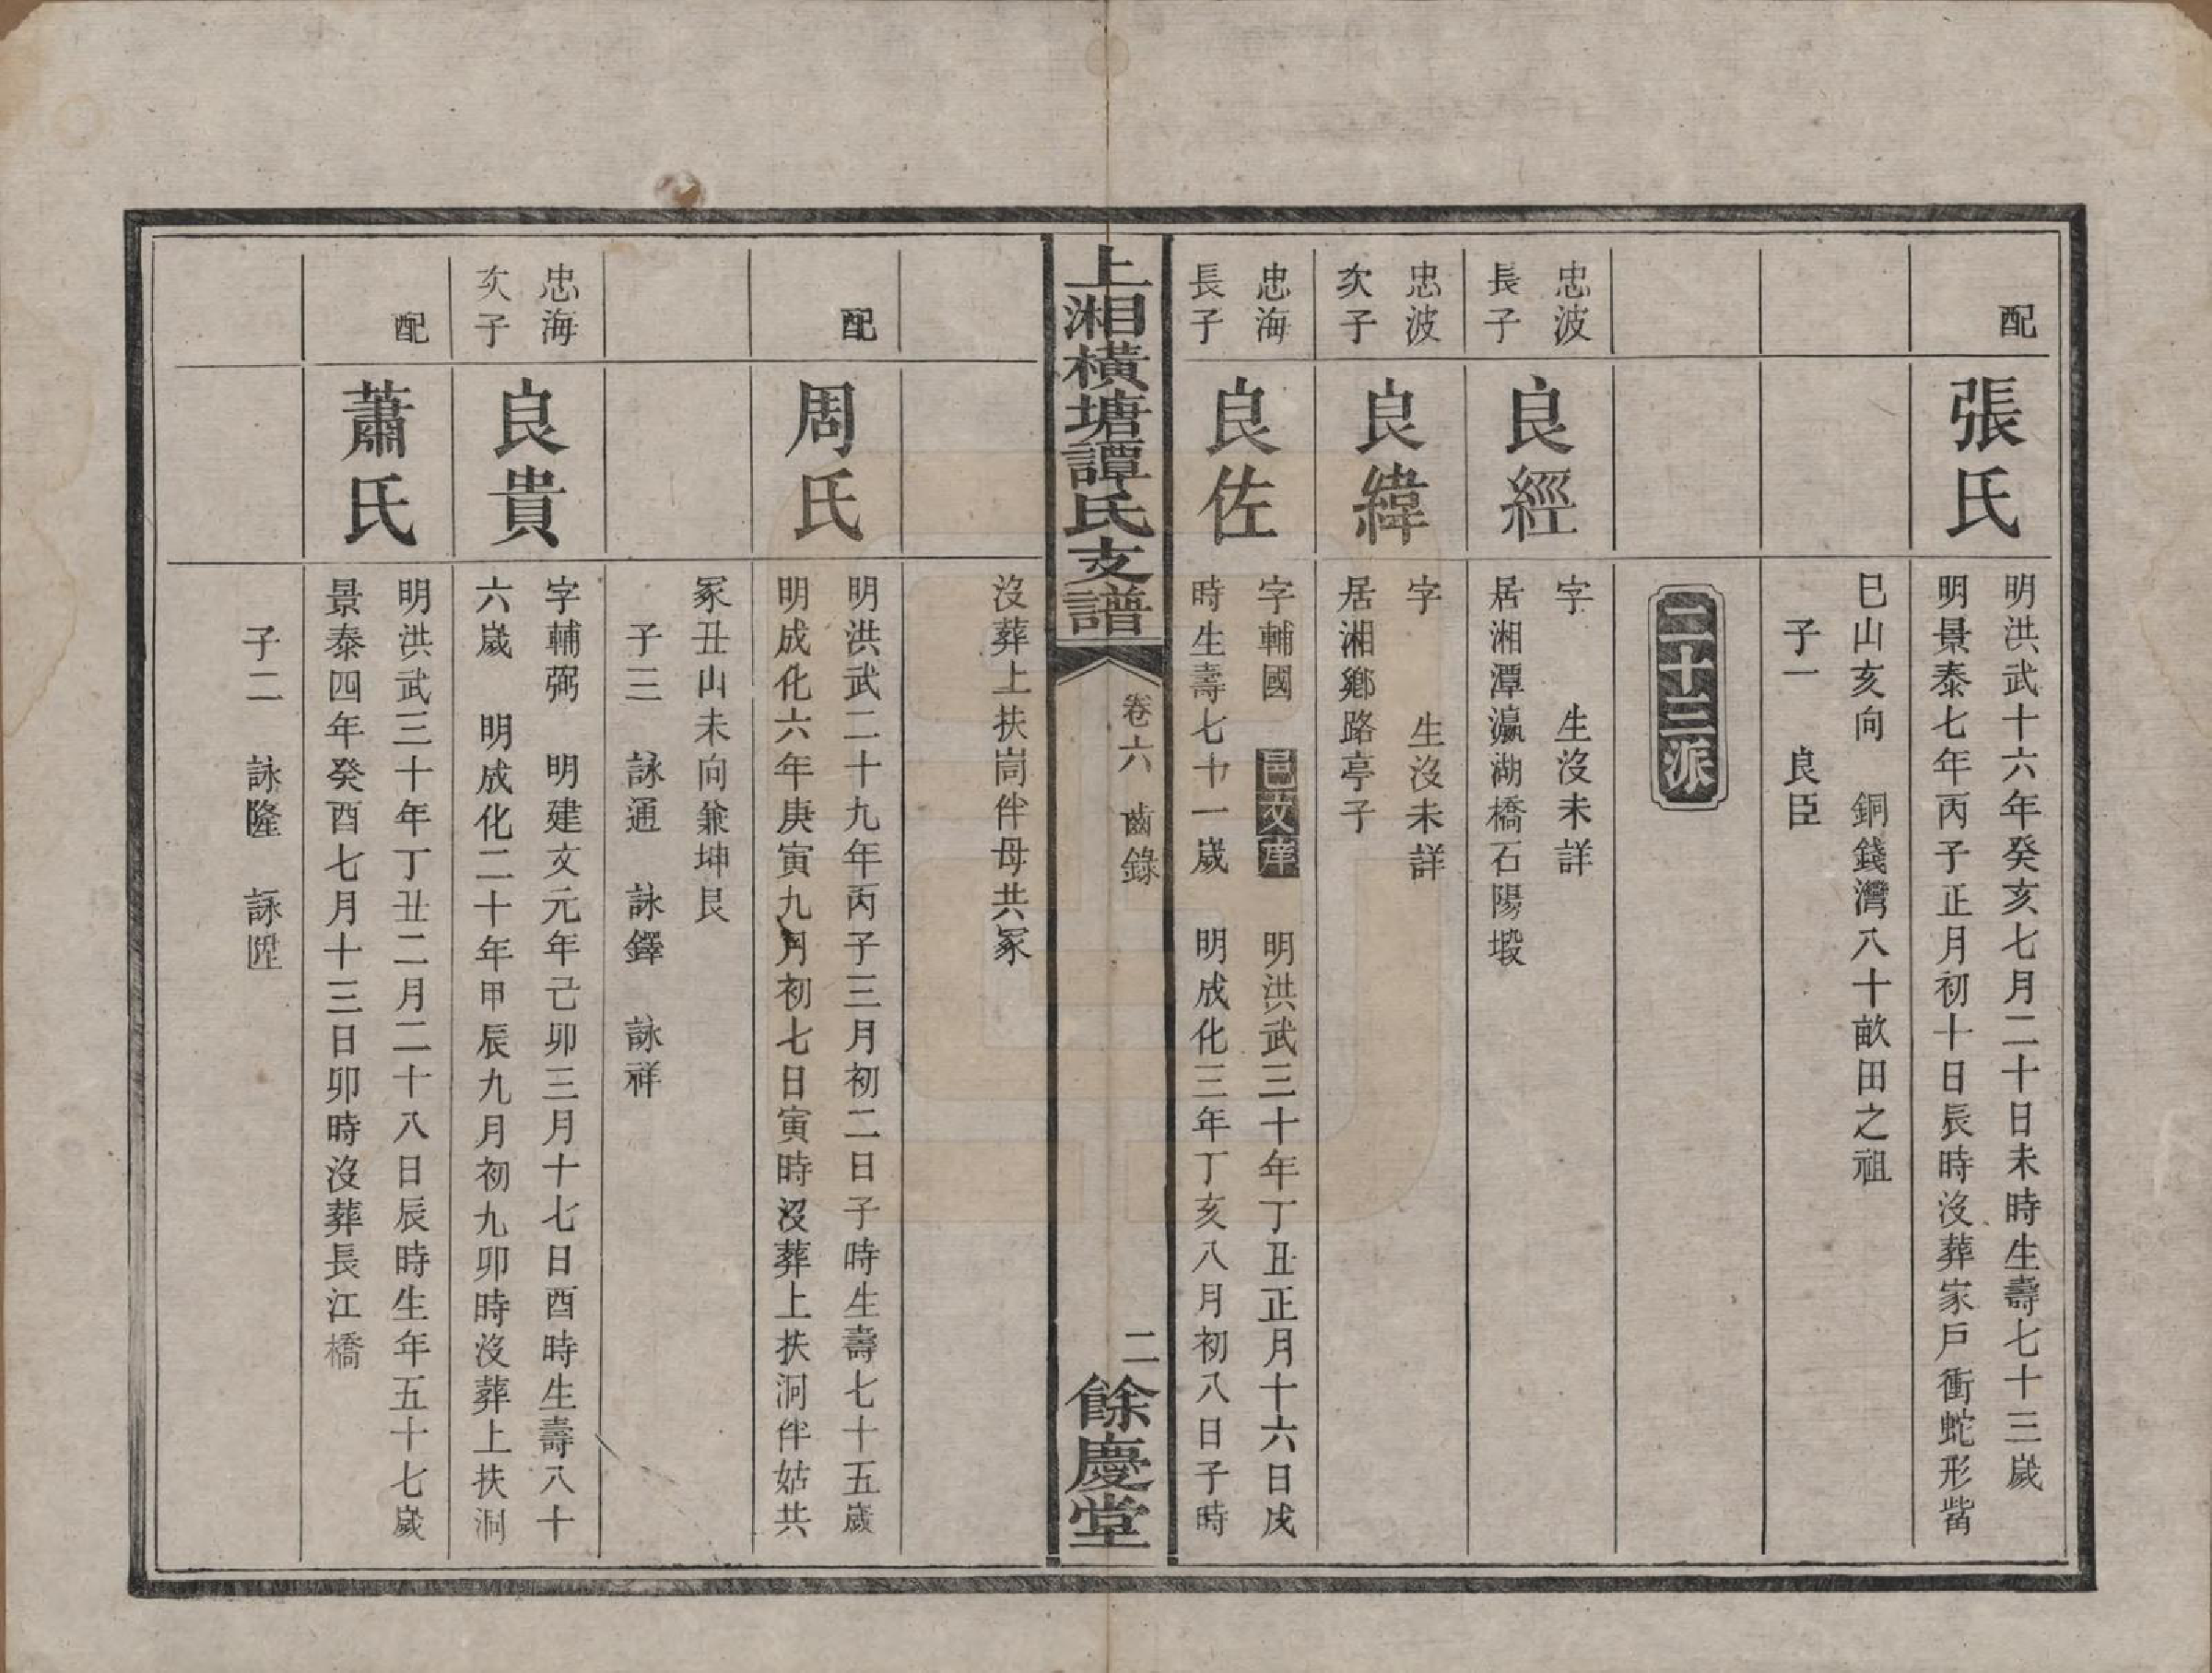 配
張氏
明洪武十六年癸亥七月二十日未時生壽七十三歲
明景泰七年丙子正月初十日辰時沒葬家戶衝蛇形嘴
巳山亥向　銅錢灣八十畝田之祖
子一　良臣
二十三派
忠波
長子
良經
字　生沒未詳
居湘潭瀛湖橋石陽塅
忠波
次子
良緯
字　生沒未詳
居湘鄉路亭子
忠海
長子
良佐
字輔國　邑文庠　明洪武三十年丁丑正月十六日戌
時生壽七十一歲　明成化三年丁亥八月初八日子時
上湘橫塘譚氏支譜
卷六　齒錄
二
餘慶堂
沒葬上扶峝伴母共冢
配
周氏
明洪武二十九年丙子三月初二日子時生壽七十五歲
明成化六年庚寅九月初七日寅時沒葬上扶洞伴姑共
冢丑山未向兼坤艮
子三　詠通　詠鐸　詠祥
忠海
次子
良貴
字輔弼　明建文元年己卯三月十七日酉時生壽八十
六歲　明成化二十年甲辰九月初九卯時沒葬上扶洞
配
蕭氏
明洪武三十年丁丑二月二十八日辰時生年五十七歲
景泰四年癸酉七月十三日卯時沒葬長江橋
子二　詠隆　詠陞